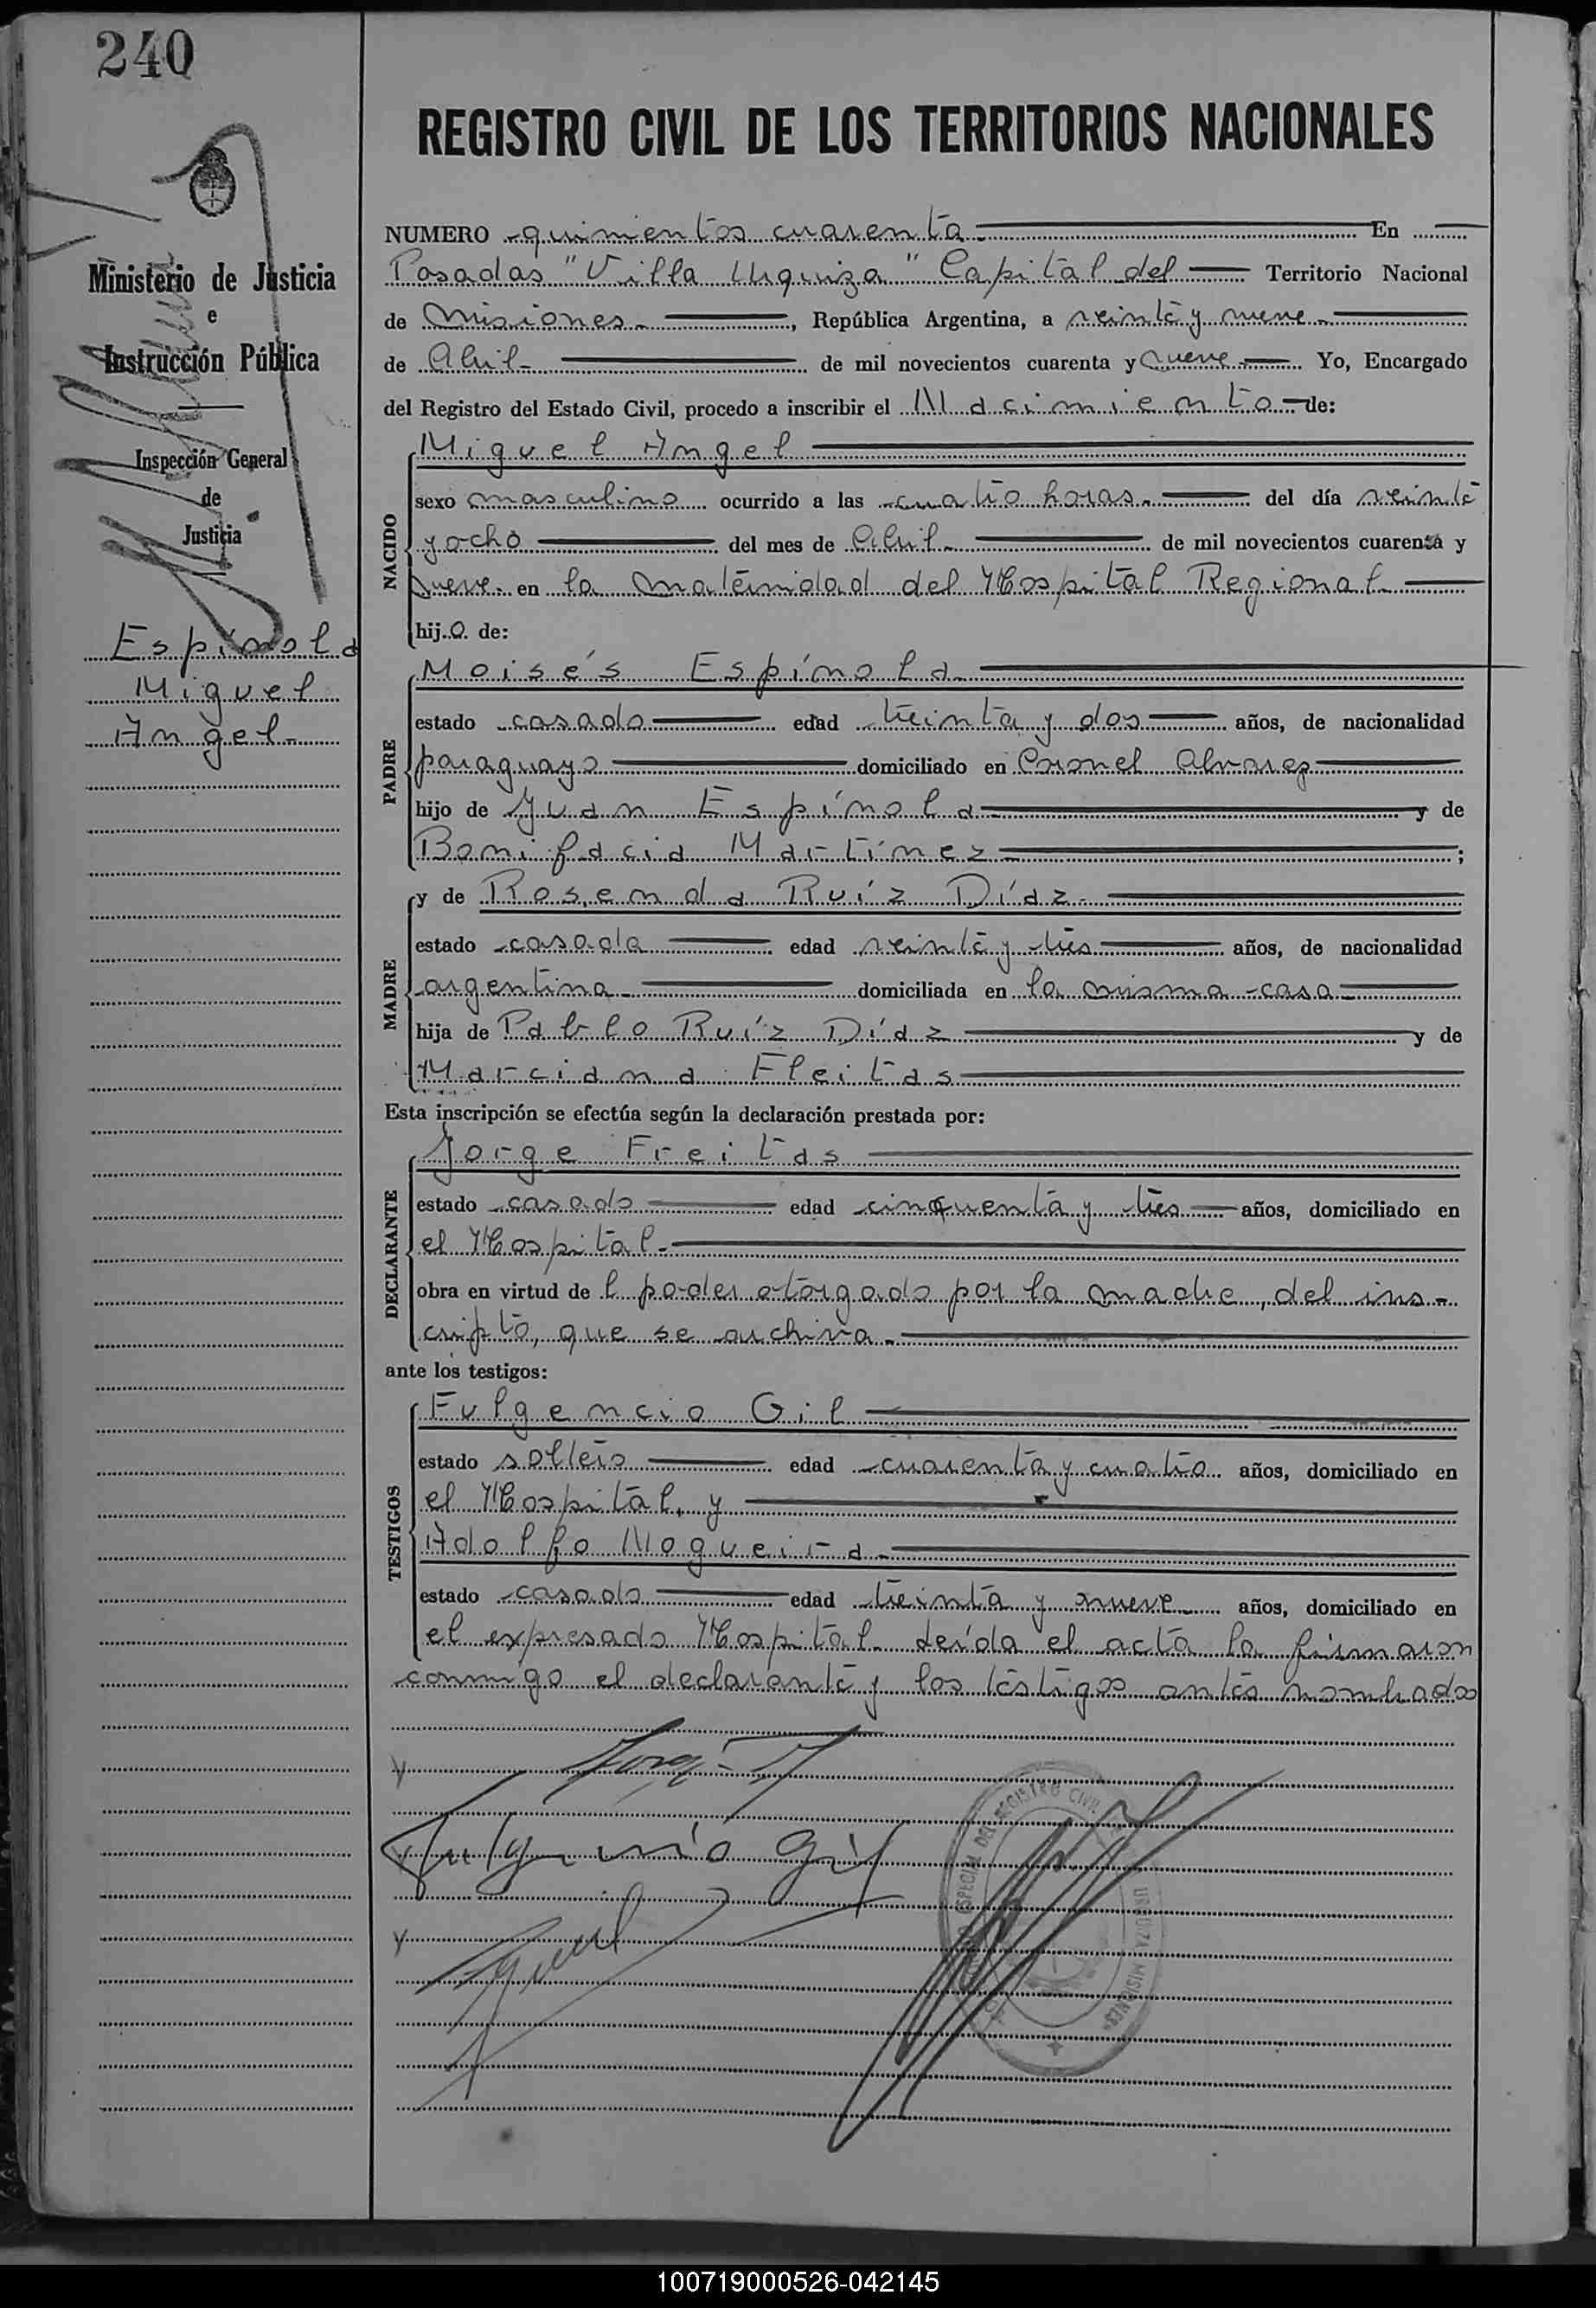 240
REGISTRO CIVIL DE LOS TERRITORIOS NACIONALES
Ministerio de Justicia
e
Instrucción Pública
Inspección General
de
Justicia
Espínola
Miguel
Angel.-
NUMERO quinientos cuarenta.- En
Posadas "Villa Urquiza" Capital del Territorio Nacional
de Misiones.-, República Argentina, a veinte y nueve.-
de Abril- de mil novecientos cuarenta y nueve.- Yo, Encargado
del Registro del Estado Civil, procedo a inscribir el Nacimiento de:
NACIDO
Miguel Angel
sexo masculino ocurrido a las cuatro horas.- del día veinte
y ocho del mes de Abril.- de mil novecientos cuarenta y
nueve.- en la maternidad del Hospital Regional.-
hijo. de:
PADRE
Moisés Espínola.-
estado casado edad treinta y dos años, de nacionalidad
paraguayo domiciliado en Coronel Alvarez
hijo de Juan Espínola.- y de
Bonifacia Martínez.- ;
MADRE
y de Rosenda Ruíz Díaz.-
estado casada edad veinte y tres años, de nacionalidad
argentina.- domiciliada en la misma casa.-
hija de Pablo Ruíz Díaz y de
Marciana Fleitas
Esta inscripción se efectúa según la declaración prestada por:
DECLARANTE
Jorge Freitas
estado casado edad cincuenta y tres años, domiciliado en
el Hospital.-
obra en virtud de l poder otorgado por la madre, del ins-
cripto, que se archiva.-
ante los testigos:
TESTIGOS
Fulgencio Gil
estado soltero edad cuarenta y cuatro años, domiciliado en
el Hospital, y
Adolfo Nogueira.-
estado casado edad treinta y nueve.- años, domiciliado en
el expresado Hospital. Leída el acta la firmaron
conmigo el declarante y los testigos antes nombrados
Fulgencio Gil
ESPECIAL DEL REGISTRO CIVIL
URQUIZA MISIONES
100719000526-042145